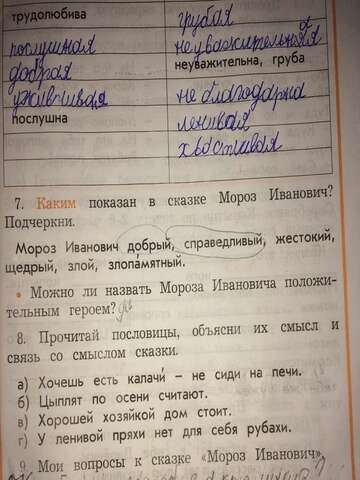 трудолюбива
грубая
послушная
неуважительная
добрая
неуважительна, груба
уживчивая
не благодарна
послушна
ленивая
хвастливая
7. Каким показан в сказке Мороз Иванович?
Подчеркни.
Мороз Иванович добрый, справедливый, жестокий,
щедрый, злой, злопа́мятный.
• Можно ли назвать Мороза Ивановича положи-
тельным героем?
8. Прочитай пословицы, объясни их смысл и
связь со смыслом сказки.
а) Хочешь есть калачи́ – не сиди на печи.
б) Цыплят по осени считают.
в) Хорошей хозяйкой дом стоит.
г) У ленивой пряхи нет для себя рубахи.
9. Мои вопросы к сказке «Мороз Иванович»